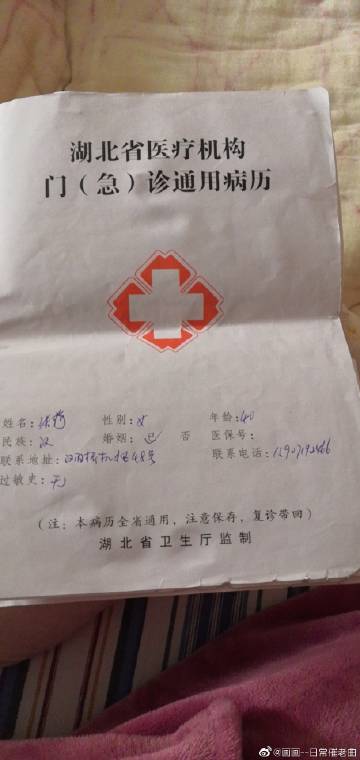 湖北省医疗机构
门（急）诊通用病历
姓名： 性别：女 年龄：40
民族：汉 婚姻：已 否 医保号：
联系地址： 48号 联系电话：
过敏史：无
（注：本病历全省通用，注意保存，复诊带回）
湖北省卫生厅监制
@画画--日常催老曲